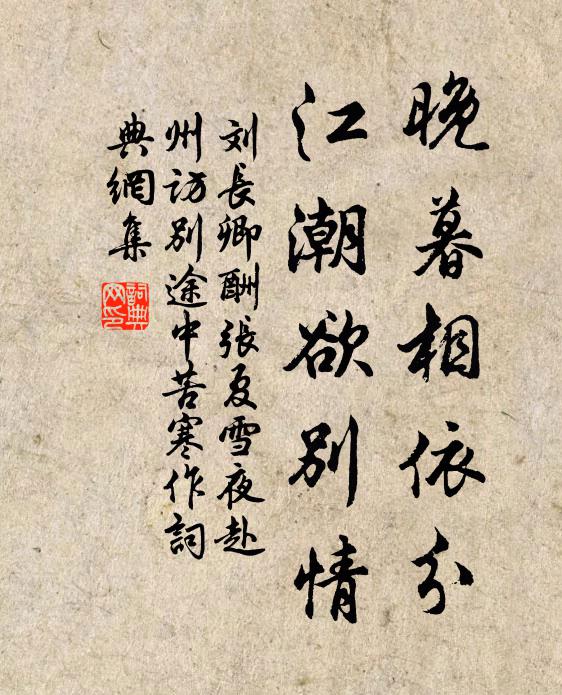 晚暮相依分
江潮欲别情
刘長卿酬張夏雪夜赴
州訪别途中苦寒作詞
典網集
詞典
网印